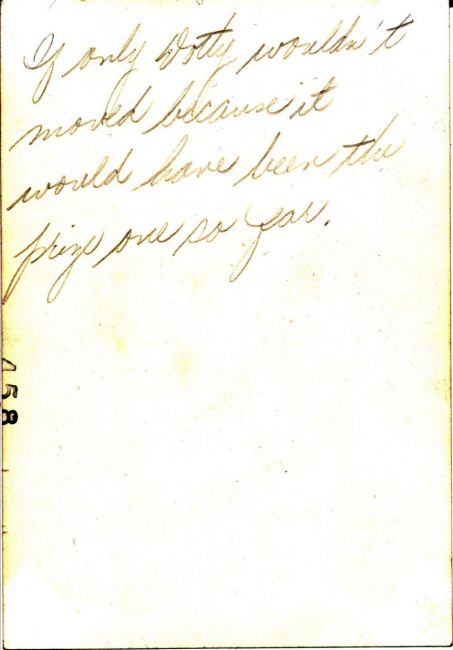 If only Dotty wouldn't
moved because it
would have been the
prize one so far.
458